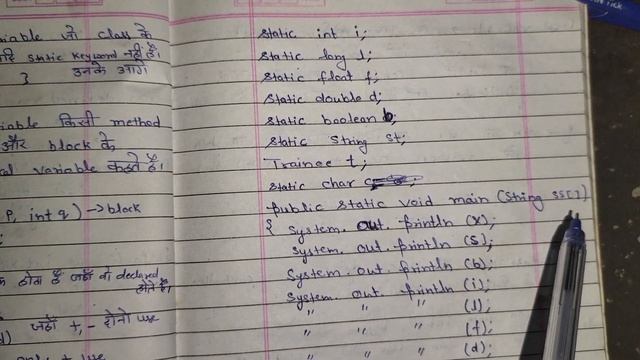 iable जो class के
दि static keyword नहीं है।
} उनके आगे
riable किसी method
और block के
al variable कहते है।
P, int q) → block
होता है जहाँ वो declared
होते है।
जहाँ +, - दोनो use
static int i;
static long l;
static float f;
static double d;
static boolean b;
static String st;
Trainee t;
static char
public static void main (String ss[])
{ System. out. println (x);
System. out. println (s);
System. out. println (b);
System. out. println (i);
" " " (l);
" " " (f);
" " " (d);